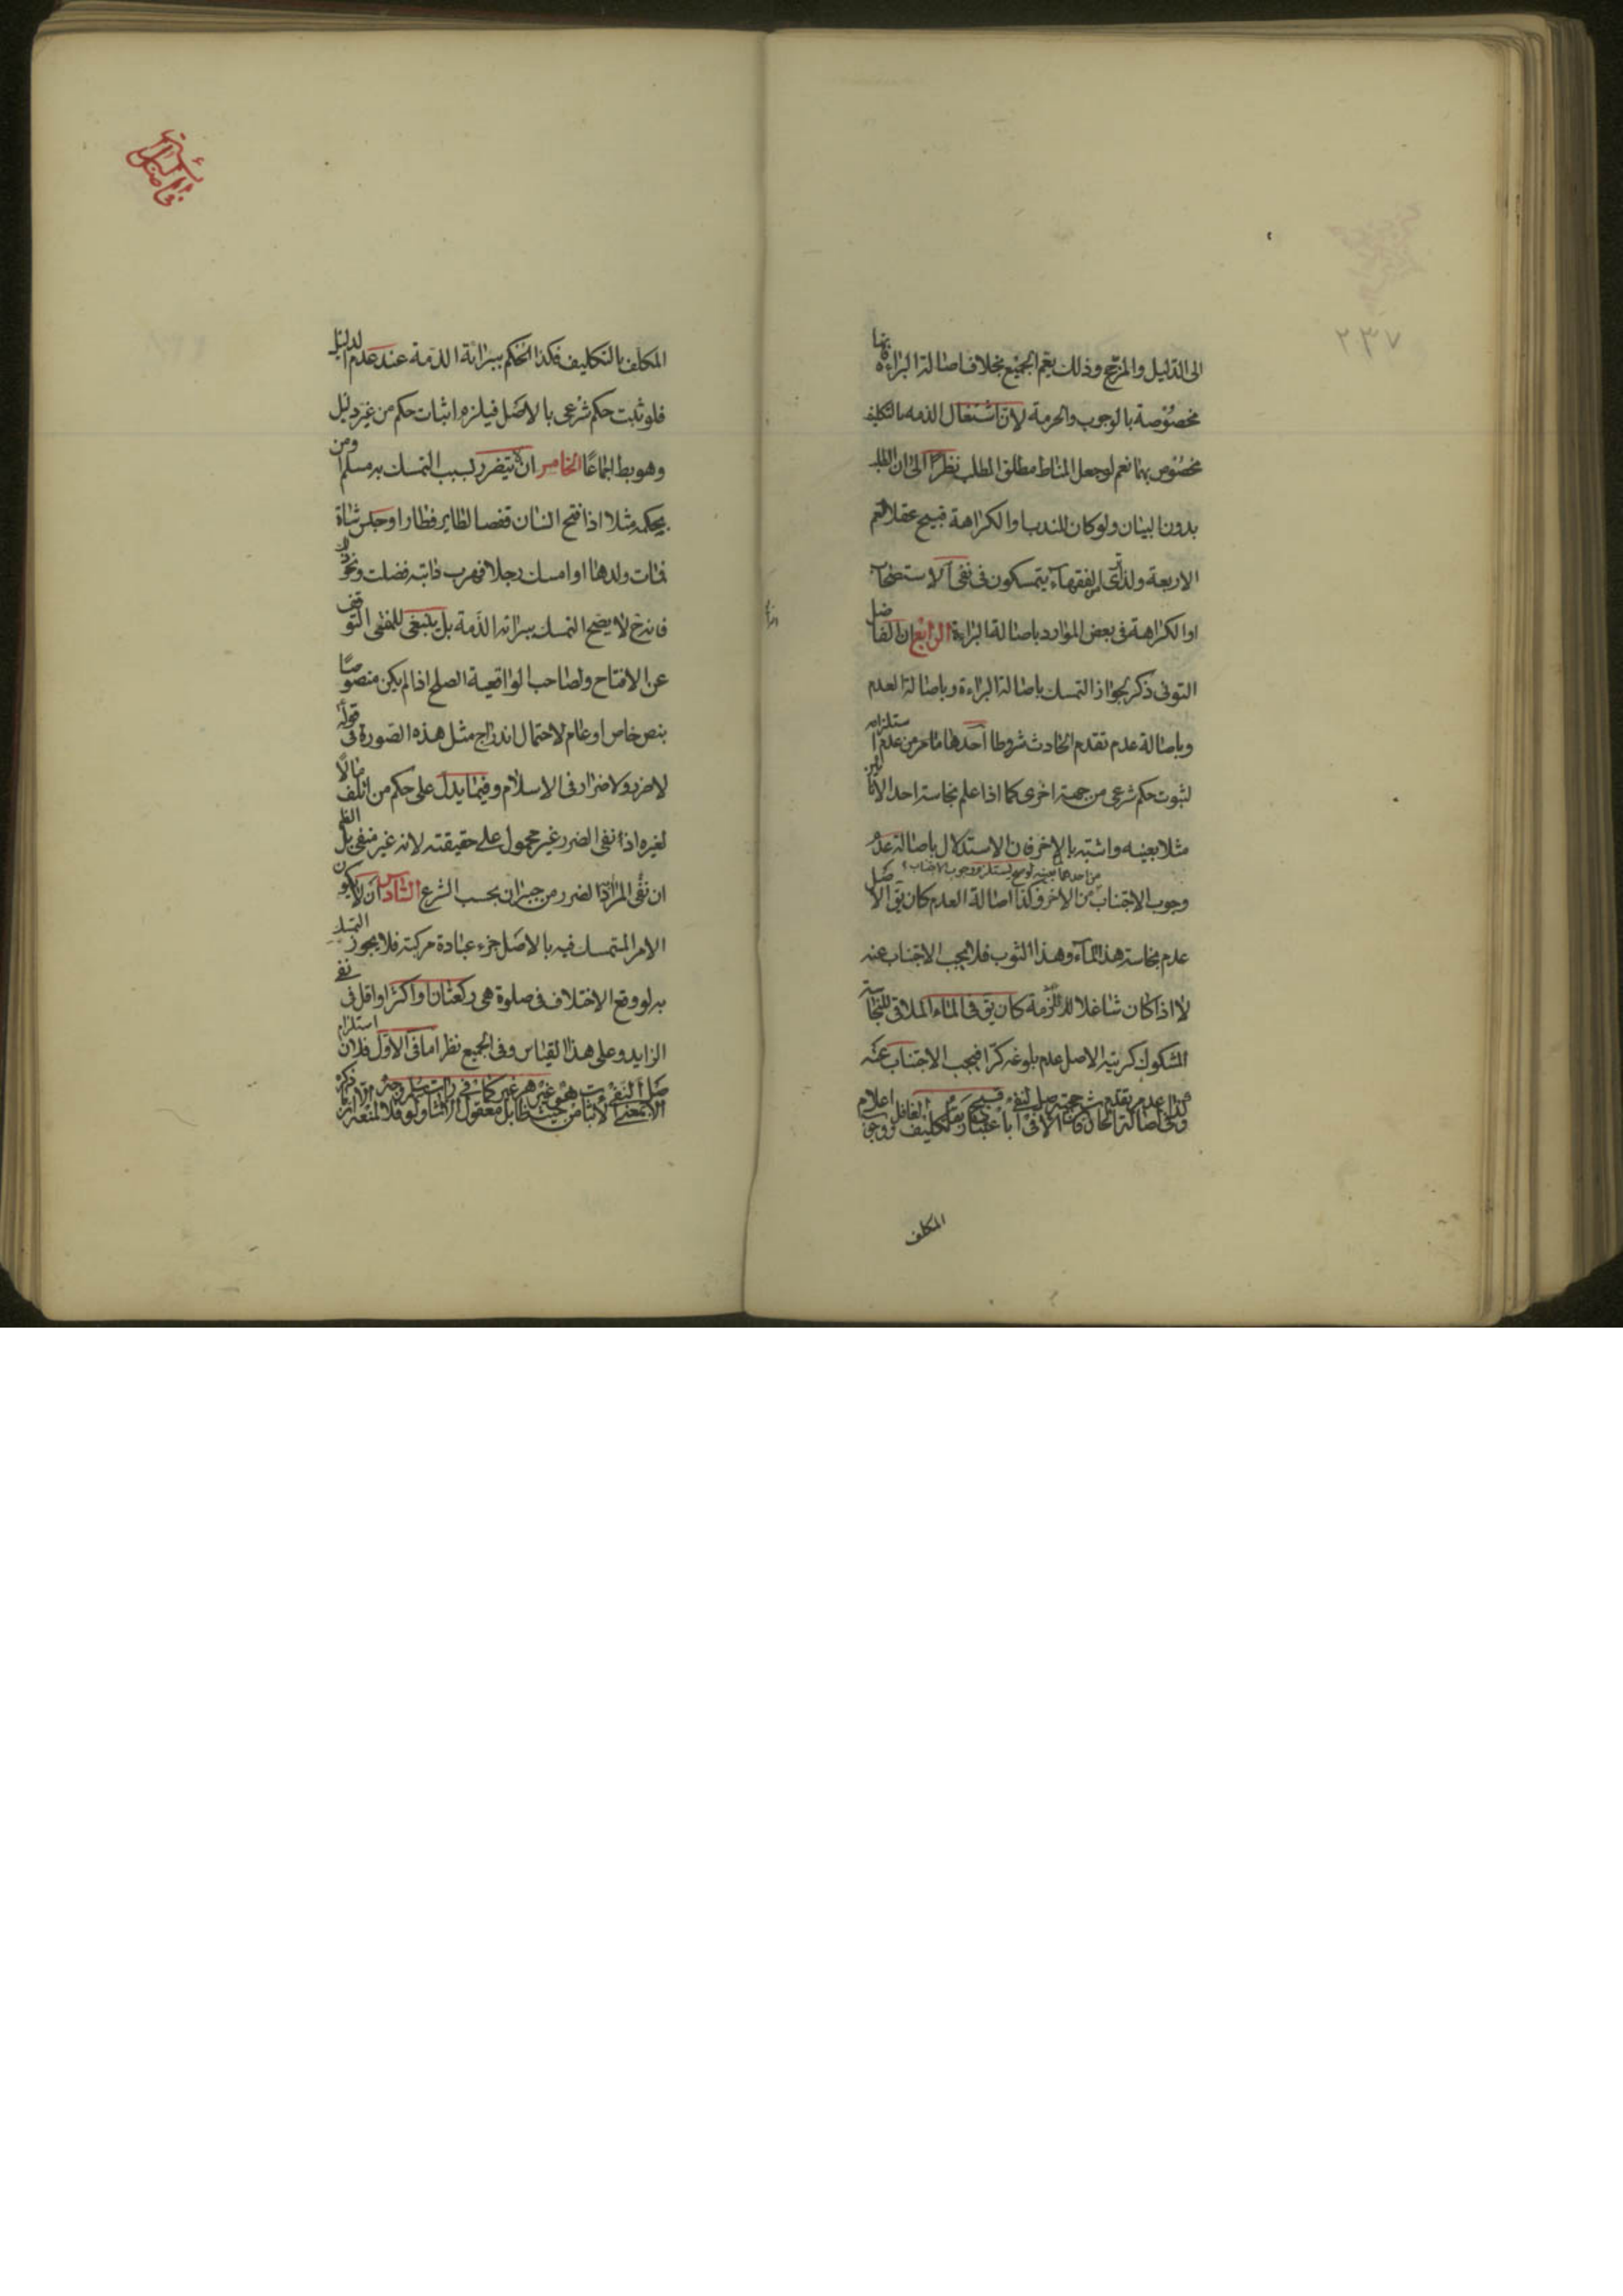 ٢٣٧
الى الدليل والمرجح وذلك يعم الجميع بخلاف اصالة البراءة فانها
مخصوصة بالوجوب والحرمة لان اشتغال الذمه بالتكليف
مخصوص بهما نعم لو جعل المناط مطلق الطلب نظرا الى ان الطلب
بدون البيان ولو كان للندب او الكراهة قبيح عقلا لعم
الاربعة ولذا ترى الفقهاء يتمسكون فى نفى الاستحباب
او الكراهة فى بعض الموارد باصالة البراءة الرابع ان الفاضل
التونى ذكر لجواز التمسك باصالة البراءة وباصالة العدم
وباصالة عدم تقدم الحادث شروطا احدها ما مر من عدم استلزامه
لثبوت حكم شرعى من جهة اخرى كما اذا علم نجاسة احد الانائين
مثلا بعينه واشتبه بالاخر فان الاستدلال باصالة عدم
وجوب الاجتناب من احدهما بعينه لو صح يستلزم وجوب الاجتناب من الاخر وكذا اصالة العدم كان يق الاصل
عدم نجاسة هذا الماء وهذا الثوب فلا يجب الاجتناب عنه
لا اذا كان شاغلا للذمة كان يق فى الماء الملاقى للنجاسة
المشكوك كريته الاصل عدم بلوغه كرا فيجب الاجتناب عنه
وكذا فى اصالة عدم تقدم الحادث
المكلف
المكلف بالتكليف فكذا الحكم ببرائة الذمة عند عدم الدليل
فلو ثبت حكم شرعى بالاصل فيلزم اثبات حكم من غير دليل
وهو بط اجماعا الخامس ان لا يتضرر بسبب التمسك به مسلم او من
بحكمه مثلا اذا فتح انسان قفصا لطاير فطار او حبس شاة
فمات ولدها او امسك رجلا فهرب دابته فضلت ونحو ذلك
فانه ح لا يصح التمسك ببرائة الذمة بل ينبغى للمفتى التوقف
عن الافتاح ولصاحب الواقعية الصلح اذا لم يكن منصوصا
بنص خاص او عام لاحتمال اندراج مثل هذه الصورة فى قوله
لا ضرر ولا ضرار فى الاسلام وفيما يدل على حكم من اتلف مالا
لغيره اذ نفى الضرر غير محمول على حقيقته لانه غير منفى بل الظ
ان المراد نفى الضرر من جبران بحسب الشرع السادس ان لا يكون
الامر المتمسك فيه بالاصل جزء عبادة مركبة فلا يجوز التمسك
به لو وقع الاختلاف فى صلوة هى ركعتان او اكثر او اقل فى نفى
الزايد وعلى هذا القياس وفى الجميع نظر اما فى الاول فلان استلزام